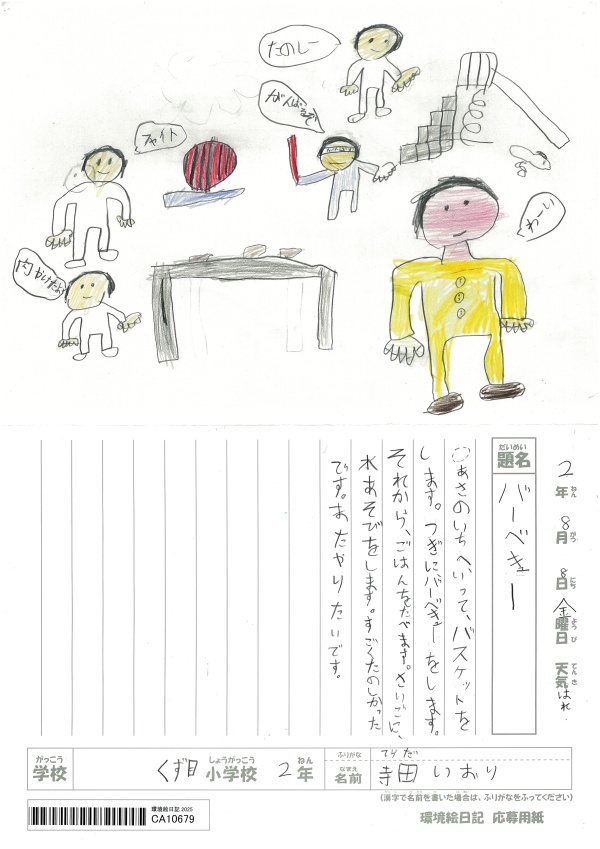 たのしー
がんばるぞ
ファイト
わーい
肉かけたよ
2年8月8日金曜日 天気はれ.
ねん がつ にち ようび てんき
だいめい
題名
バーベキュー
○あさのいちへ、いって、バスケットを
します。つぎにバーベキューをします。
それから、ごはんをたべます。さいごに、
水あそびをします。すごくたのしかった
です。またやりたいです。
がっこう
学校
くず目
しょうがっこう
小学校
2
ねん
年
ふりがな
てらだ
なまえ
名前
寺田 いおり
(漢字で名前を書いた場合は、ふりがなをふってください)
環境絵日記 応募用紙
環境絵日記 2025
CA10679